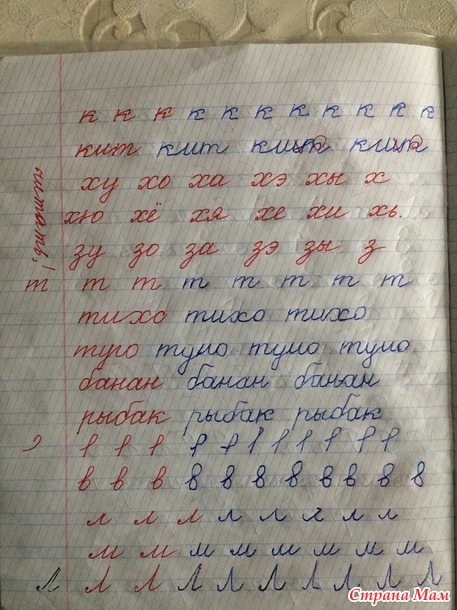 к к к к к к к к к к к
кит кит кит кит
ху хо ха хэ хы х
хю хё хя хе хи хь.
зу зо за зэ зы з
т т т т т т т т т
тихо тихо тихо
туго тупо тупо тупо
банан банан банан
рыбак рыбак рыбак
в в в в в в в в в в в
л л л л л л л л
м м м м м м м м
Л Л Л Л Л Л Л Л Л Л
Страна Мам